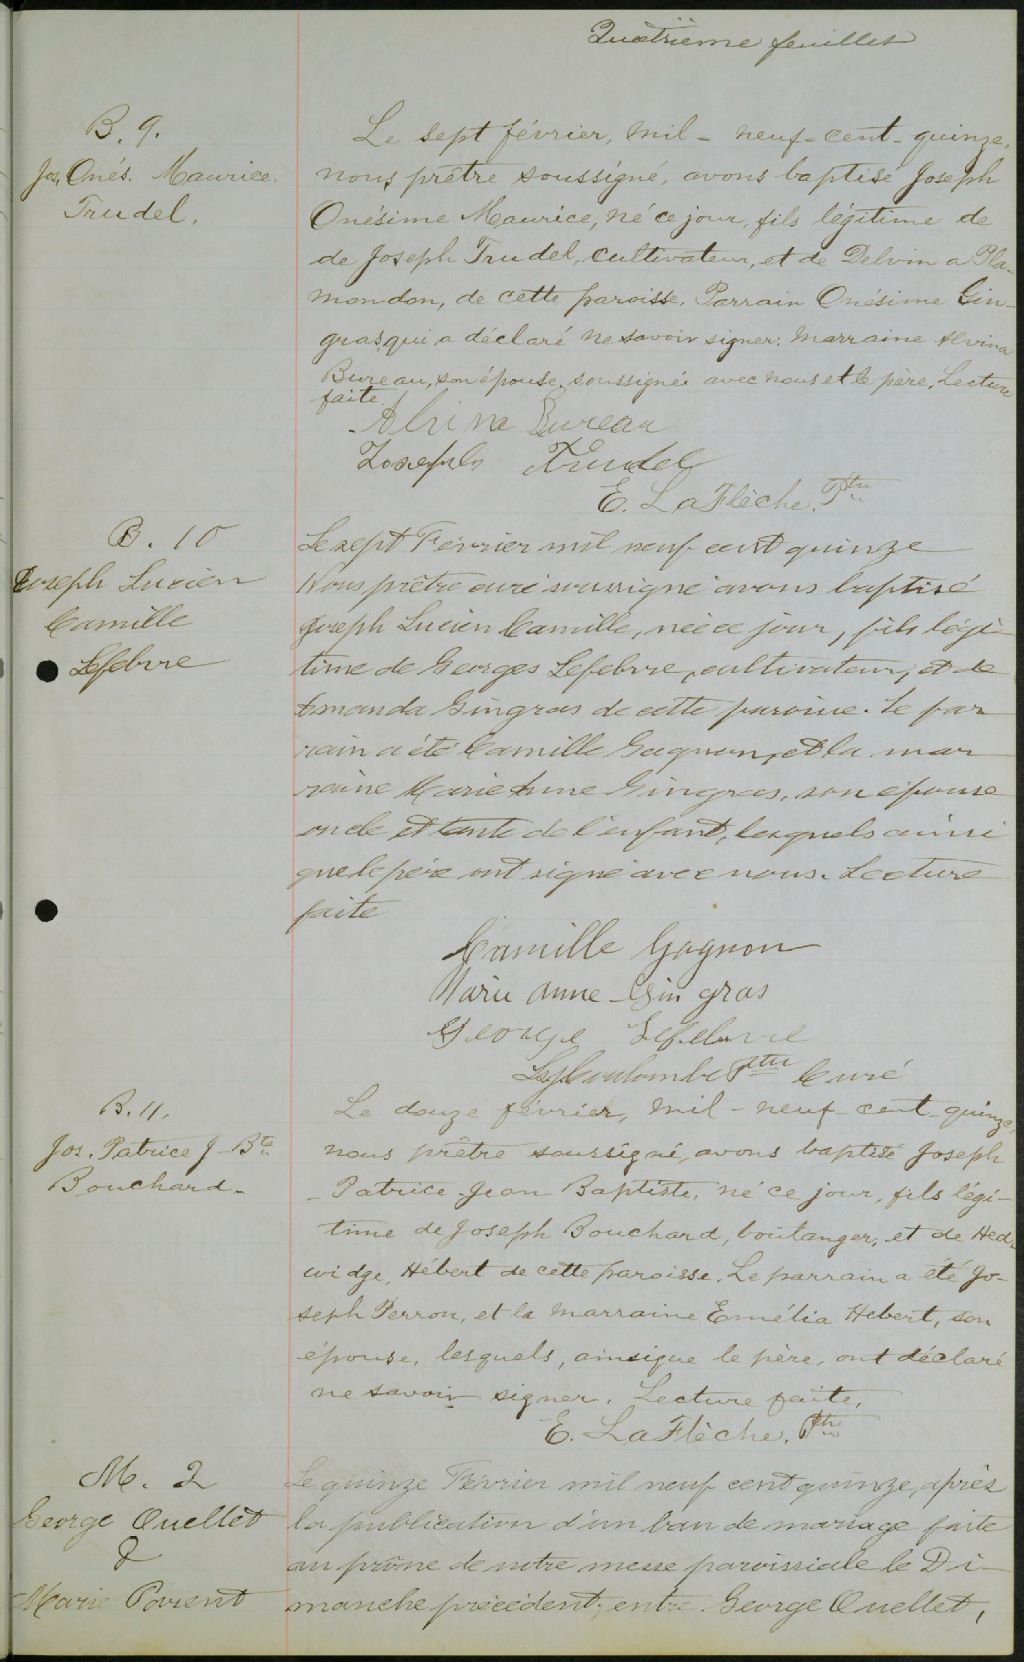 Quatrième feuillet
B. 9.
Jos. Onés. Maurice.
Trudel.
Le sept février, mil-neuf-cent-quinze,
nous prêtre soussigné, avons baptisé Joseph
Onésime Maurice, né ce jour, fils légitime de
de Joseph Trudel, cultivateur, et de Delvina Pla-
mondon, de cette paroisse. Parrain Onésime Gin-
gras, qui a déclaré ne savoir signer. Marraine Alvina
Bureau, son épouse, soussignée avec nous et le père. Lecture
faite.
Alvina Bureau
Joseph Trudel
E. LaFlèche, Ptre
B. 10
Joseph Lucien
Camille
Lefebvre
Le sept Février mil neuf cent quinze
Nous prêtre curé soussigné avons baptisé
Joseph Lucien Camille, né ce jour, fils légi-
time de Georges Lefebvre, cultivateur, et de
Amanda Gingras de cette paroisse. Le par
rain a été Camille Gagnon, et la mar
raine Marie Anne Gingras, son épouse
oncle et tante de l'enfant, lesquels ainsi
que le père ont signé avec nous. Lecture
faite
Camille Gagnon
Marie Anne Gingras
George Lefebvre
Coulombe Ptre Curé
B. 11.
Jos. Patrice J-Bte
Bouchard.
Le douze février, mil-neuf-cent-quinze,
nous prêtre soussigné, avons baptisé Joseph
Patrice Jean Baptiste, né ce jour, fils légi-
time de Joseph Bouchard, boulanger, et de Hed-
widge, Hébert de cette paroisse. Le parrain a été Jo-
seph Perron, et la marraine Emélia Hebert, son
épouse, lesquels, ainsi que le père, ont déclaré
ne savoir signer. Lecture faite.
E. LaFlèche, Ptre
M. 2
George Ouellet
&
Marie Parent
Le quinze Février mil neuf cent quinze, après
la publication d'un ban de mariage faite
au prône de notre messe paroissiale le Di-
manche précédent, entre George Ouellet,